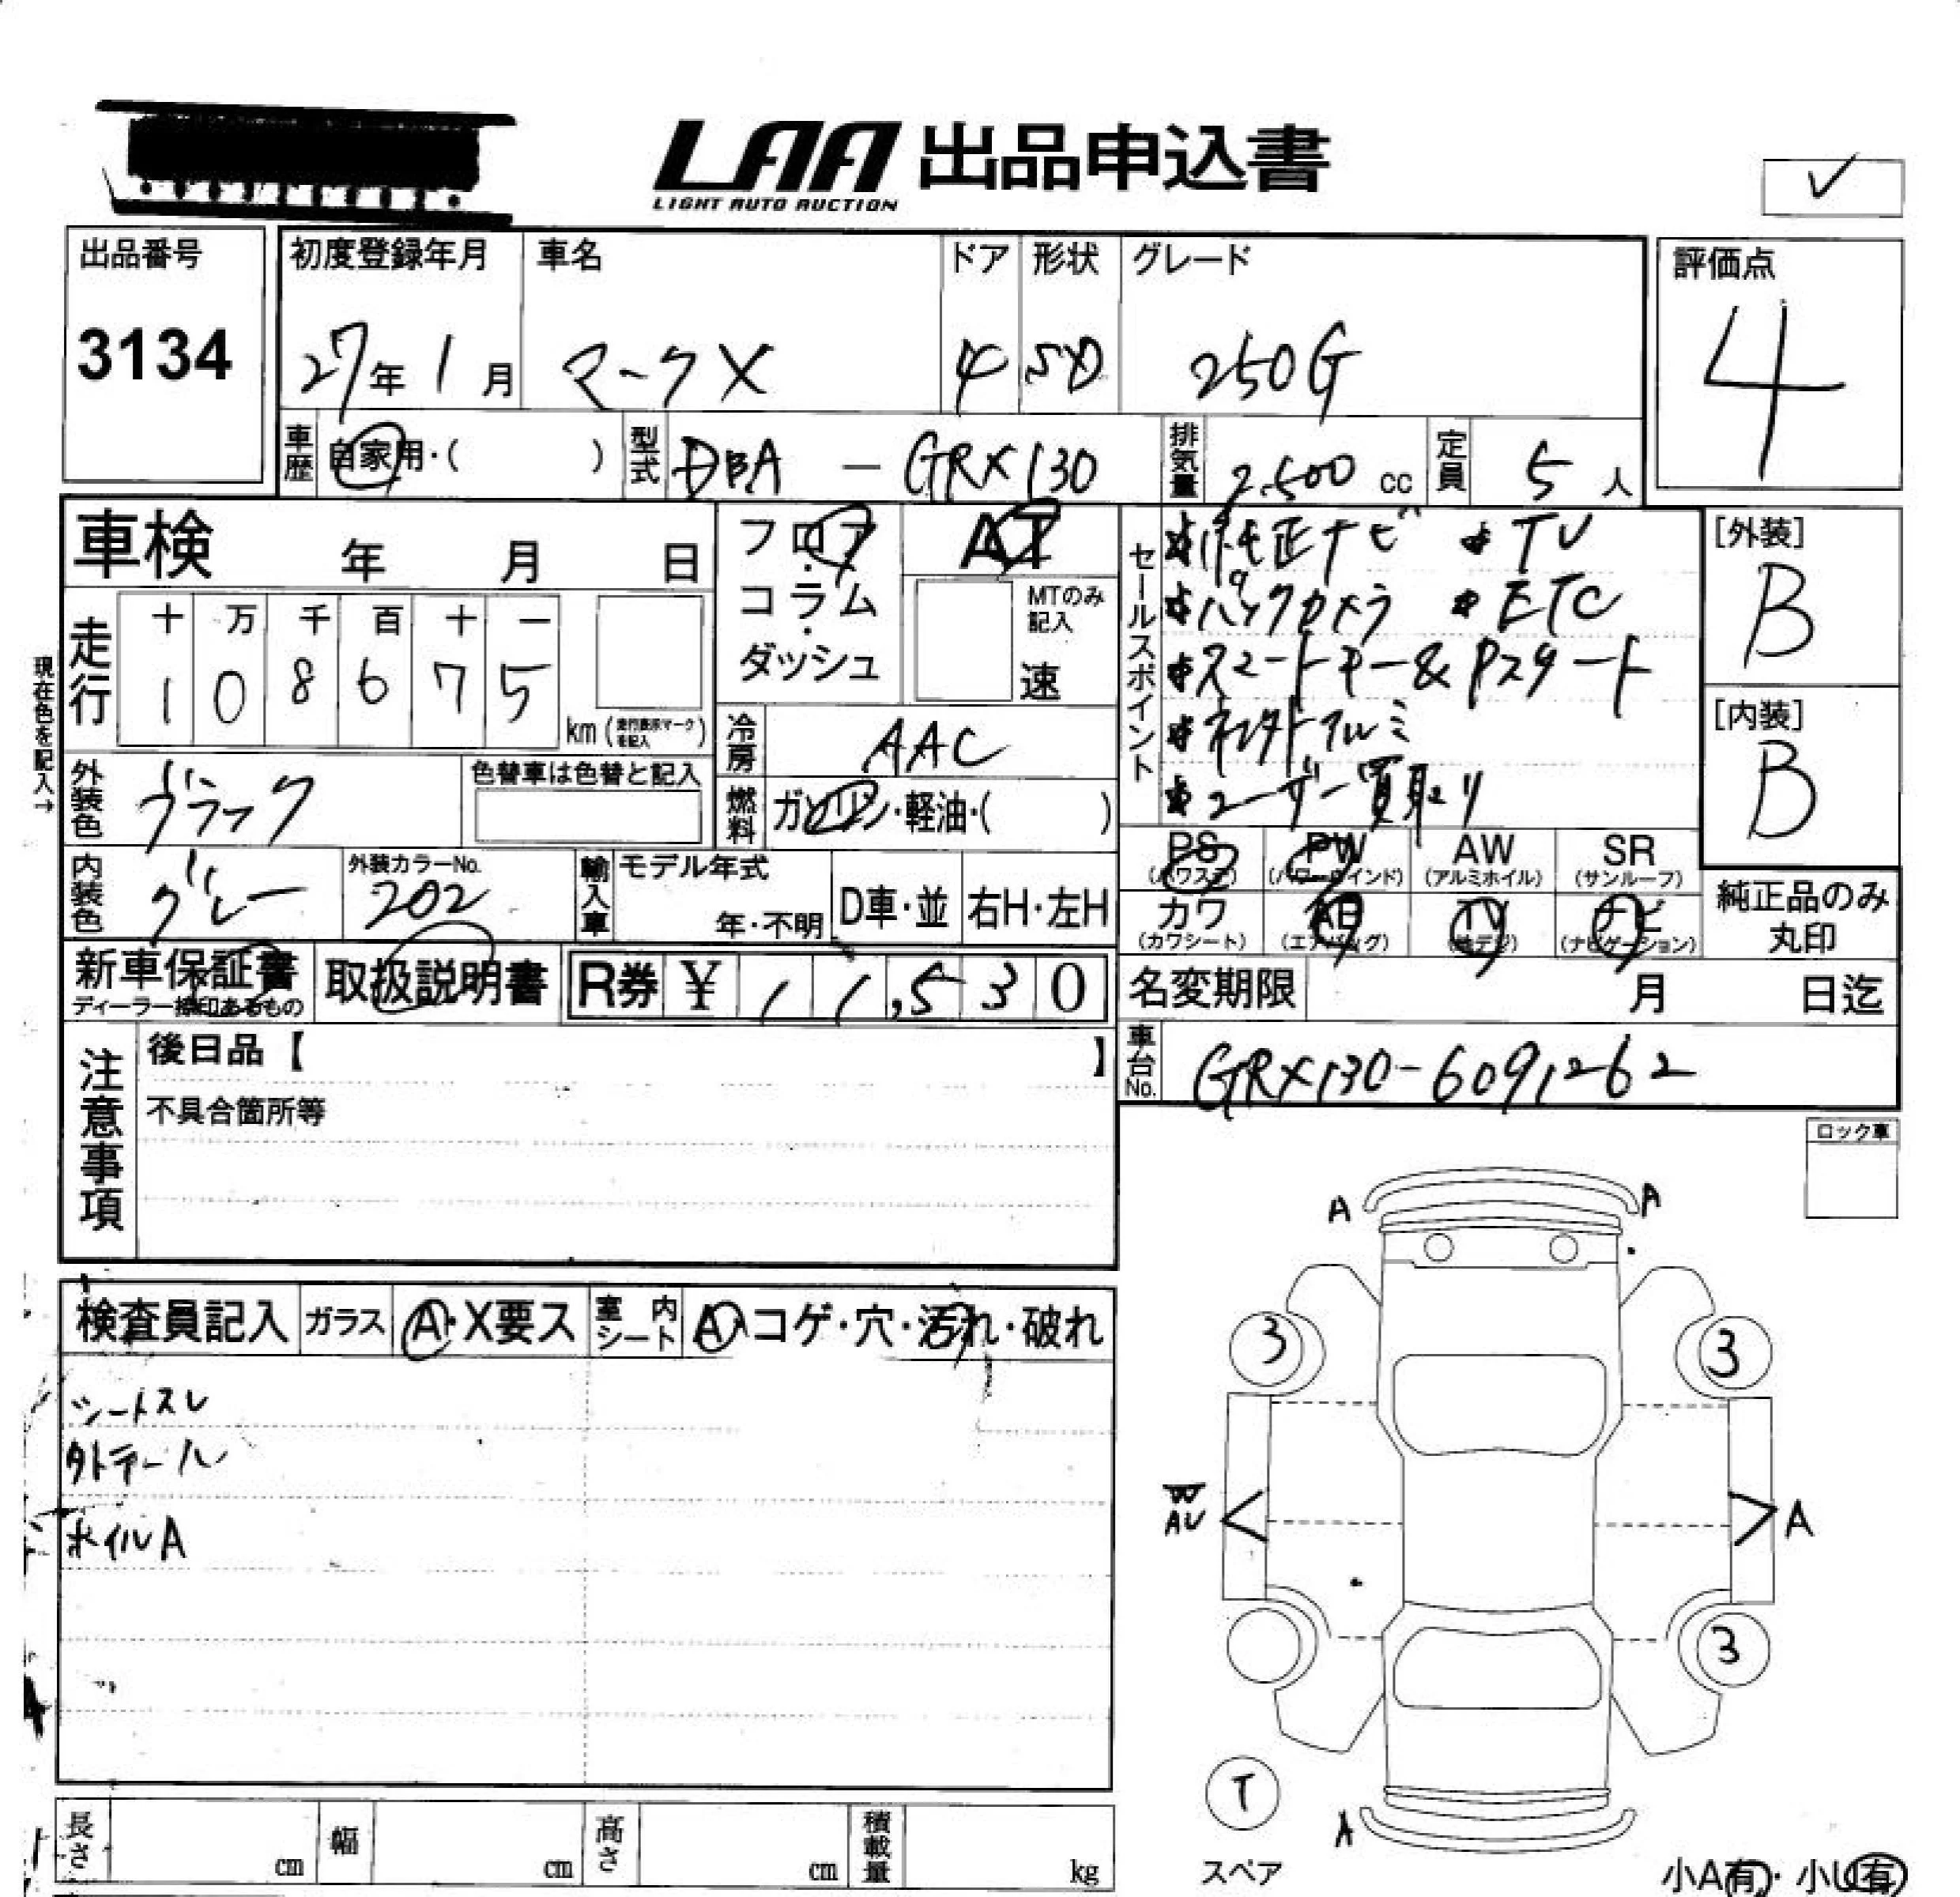 LAA 出品申込書
LIGHT AUTO AUCTION
✓
出品番号
3134
初度登録年月
27年 1月
車名
マークX
ドア
4
形状
SD
グレード
250G
評価点
4
車歴
自家用・( )
型式
DBA - GRX130
排気量
2,500 cc
定員
5 人
車検 年 月 日
フロア
・
コラム
・
ダッシュ
AT
MTのみ
記入
速
セールスポイント
純正ナビ TV
バックカメラ ETC
スマートキー&Pスタート
アルミ
ユーザー買取り
[外装]
B
[内装]
B
現在色を記入→
走行
十 万 千 百 十 一
1 0 8 6 7 5
km (走行表示マークを記入)
冷房
AAC
外装色
ブラック
色替車は色替と記入
燃料
ガソリン・軽油・( )
内装色
グレー
外装カラーNo.
202
輸入車
モデル年式
年・不明
D車・並
右H・左H
PS
(パワステ)
PW
(パワーウインド)
AW
(アルミホイル)
SR
(サンルーフ)
カワ
(カワシート)
AB
(エアバッグ)
TV
(地デジ)
ナビ
(ナビゲーション)
純正品のみ
丸印
新車保証書
ディーラー捺印あるもの
取扱説明書
R券 ¥ 11,530
名変期限 月 日迄
注意事項
後日品【 】
不具合箇所等
車台No.
GRX130-6091262
ロック車
検査員記入
ガラス
A・X要ス
室内シート
A・コゲ・穴・汚れ・破れ
シートスレ
ホイルA
A A
3 3
W
AU
A
3
T
スペア
A
小A有・小U有
長さ cm
幅 cm
高さ cm
積載量 kg